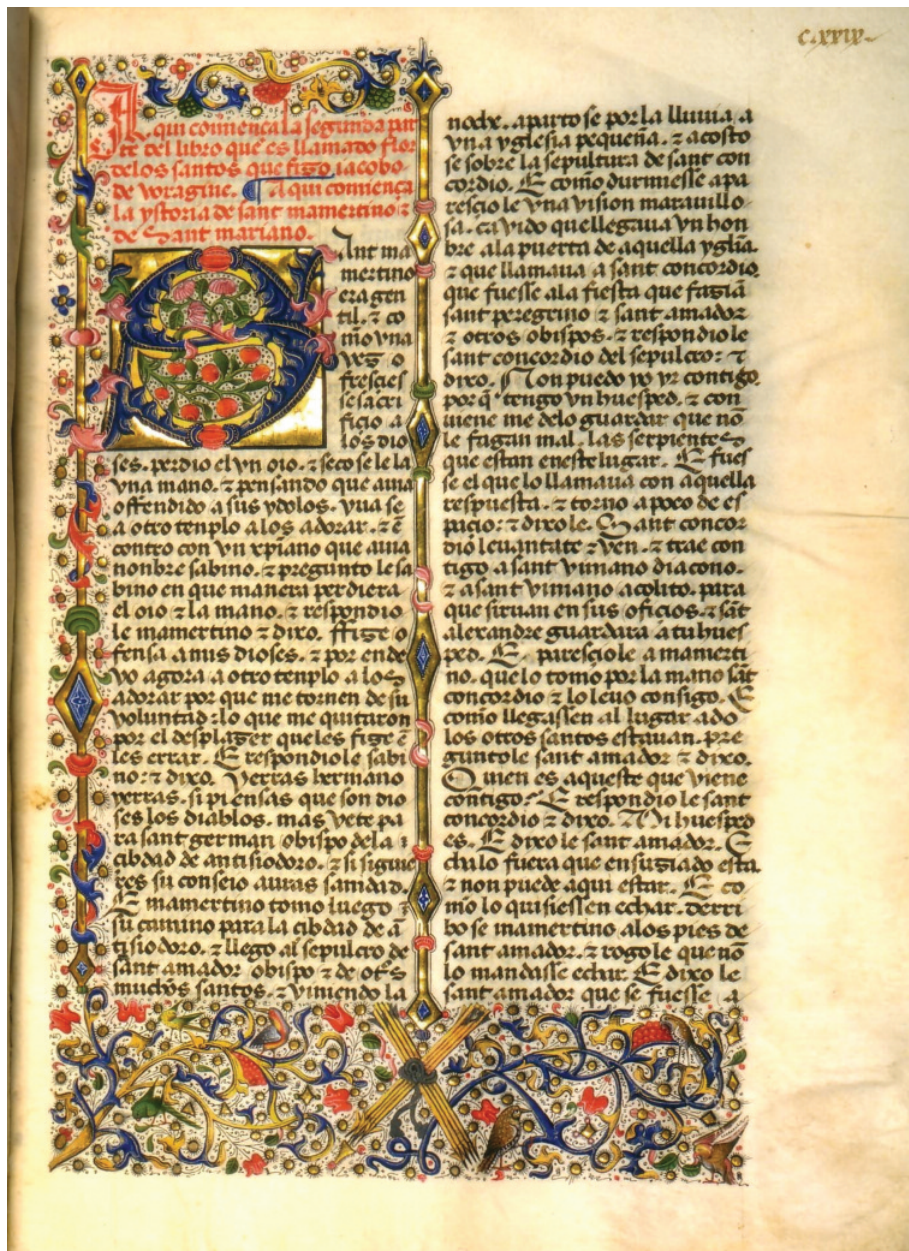 c.xxix
Aqui comiença la segunda par
te del libro que es llamado flor
delos santos que fizo iacobo
de voragine. Aqui comiença
la ystoria de sant mamertino ⁊
de Sant mariano.
Sant ma
mertino
era gen
til. ⁊ co
mo vna
vez o
fresçies
se sacri
fiçio a
los dio
ses. perdio el vn oio. ⁊ seco se le la
vna mano. ⁊ pensando que auia
offendido a sus ydolos. yua se
a otro tenplo a los adorar. ⁊ ẽ
contro con vn xp̃iano que auia
nonbre sabino. ⁊ pregunto le sa
bino en que manera perdiera
el oio ⁊ la mano. ⁊ respondio
le mamertino ⁊ dixo. ffize o
fensa a mis dioses. ⁊ por ende
vo agora a otro tenplo a los
adorar por que me tornen de su
voluntad: lo que me quitaron
por el desplazer queles fize ẽ
les errar. E respondiole sabi
no: ⁊ dixo. Yerras hermano
yerras. si piensas que son dio
ses los diablos. mas vete pa
ra sant german obispo dela
çibdad de antisiodoro. ⁊ si sigue
res su conseio auras sanidad.
E mamertino tomo luego
su camino para la çibdad de ã
tisiodoro. ⁊ llego al sepulcro de
sant amador obispo ⁊ de otr̃s
muchos santos. ⁊ viniendo la
noche. aparto se por la lluuia a
vna yglesia pequeña. ⁊ acosto
se sobre la sepultura de sant con
cordio. E como durmiesse apa
resçio le vna vision marauillo
sa. ca vido que llegaua vn hon
bre ala puerta de aquella ygl̃ia.
⁊ que llamaua a sant concordio.
que fuesse ala fiesta que faziã
sant peregrino ⁊ sant amador
⁊ otros obispos. ⁊ respondiole
sant concordio del sepulcro: ⁊
dixo. Non puedo yo yr contigo.
por q̃ tengo vn huesped. ⁊ con
uiene me delo guardar que nõ
le fagan mal. las serpientes
que estan eneste lugar. E fues
se el que lo llamaua con aquella
respuesta. ⁊ torno a poco de es
paçio: ⁊ dixole. Sant concor
dio leuantate ⁊ ven. ⁊ trae con
tigo a sant viuiano diacono.
⁊ a sant viuiano acolito. para
que siruan en sus ofiçios. ⁊ sãt
alexandre guardara a tu hues
ped. E. paresçiole a mamerti
no. que lo tomo por la mano sãt
concordio ⁊ lo leuo consigo. E
como llegassen al lugar ado
los otros santos estauan. pre
guntole sant amador ⁊ dixo.
Quien es aqueste que viene
contigo? E respondio le sant
concordio ⁊ dixo. Mi huesped
es. E dixo le sant amador. E
chalo fuera que ensuziado esta.
⁊ non puede aqui estar. E co
mo lo quisiessen echar. derri
bo se mamertino alos pies de
sant amador. ⁊ rogole que nõ
lo mandasse echar. E dixo le
sant amador que se fuesse a